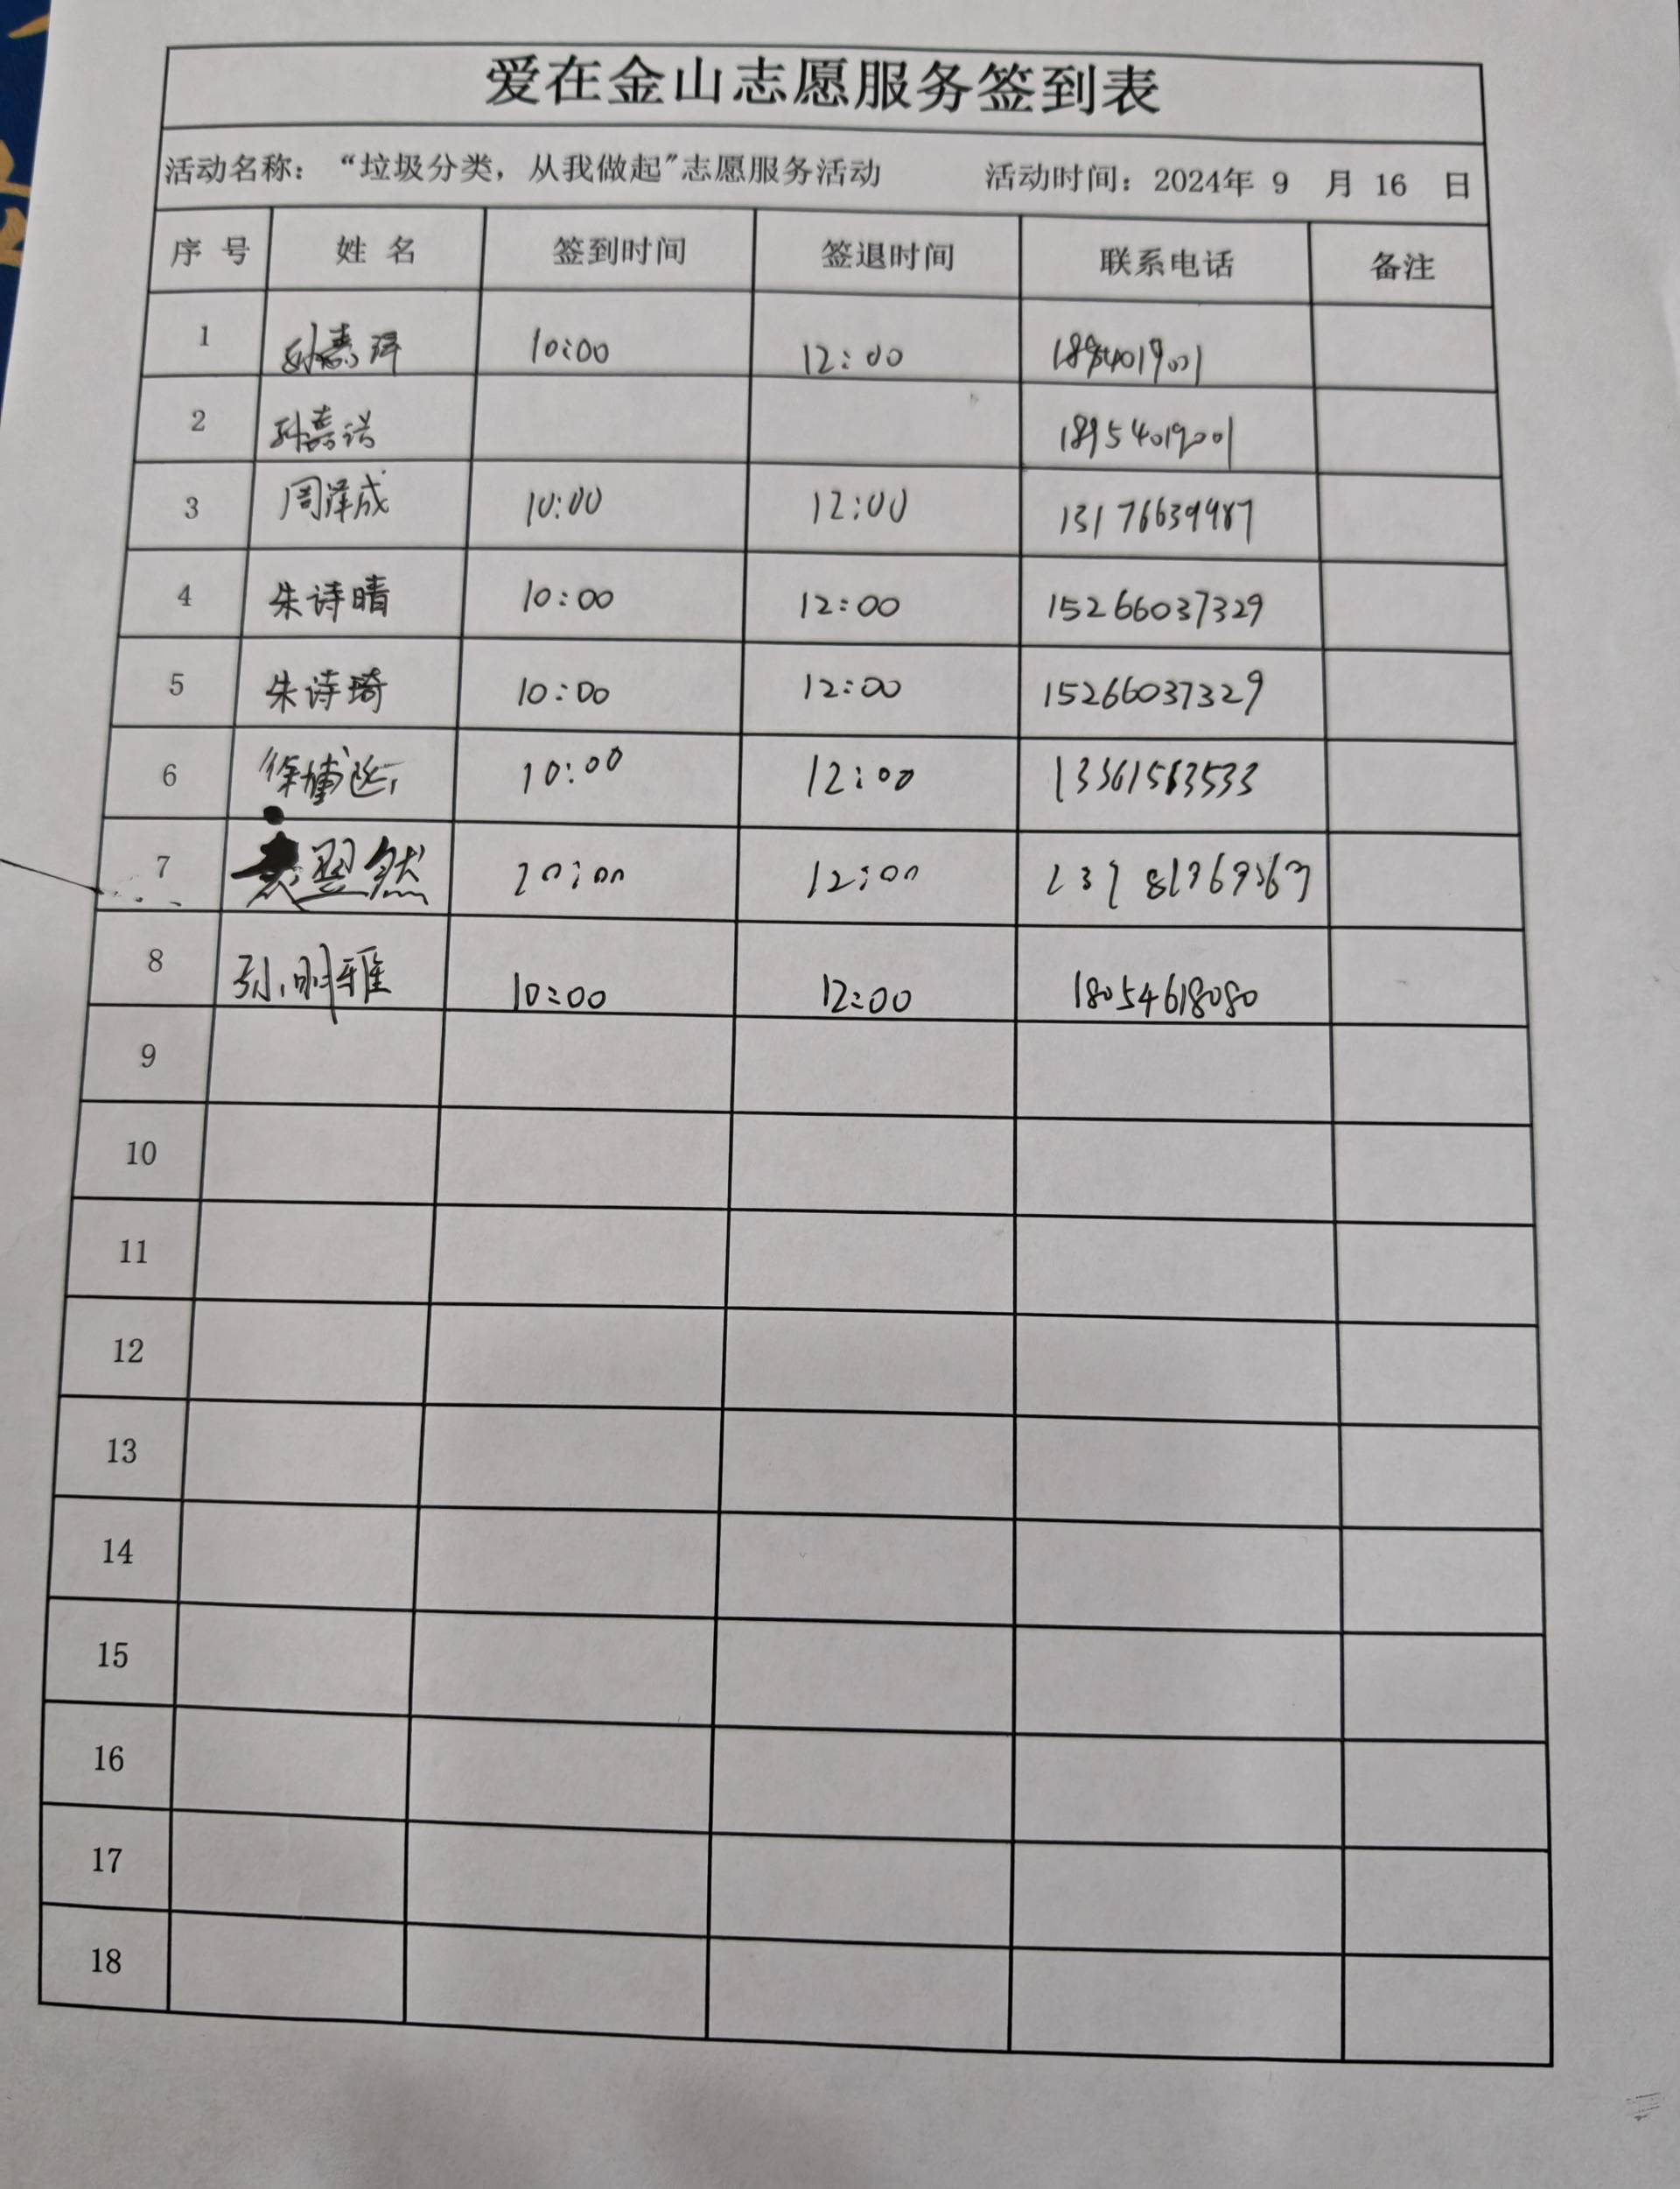 爱在金山志愿服务签到表
活动名称：“垃圾分类，从我做起”志愿服务活动 活动时间：2024年 9 月 16 日
序 号 姓 名 签到时间 签退时间 联系电话 备注
1 孙嘉 10:00 12:00
2 孙嘉诺 18954019001
3 周泽成 10:00 12:00 13176639987
4 朱诗晴 10:00 12:00 15266037329
5 朱诗琦 10:00 12:00 15266037329
6 徐 10:00 12:00 13361563533
7 翌然 10:00 12:00
8 孙明雅 10:00 12:00 18054618080
9
10
11
12
13
14
15
16
17
18